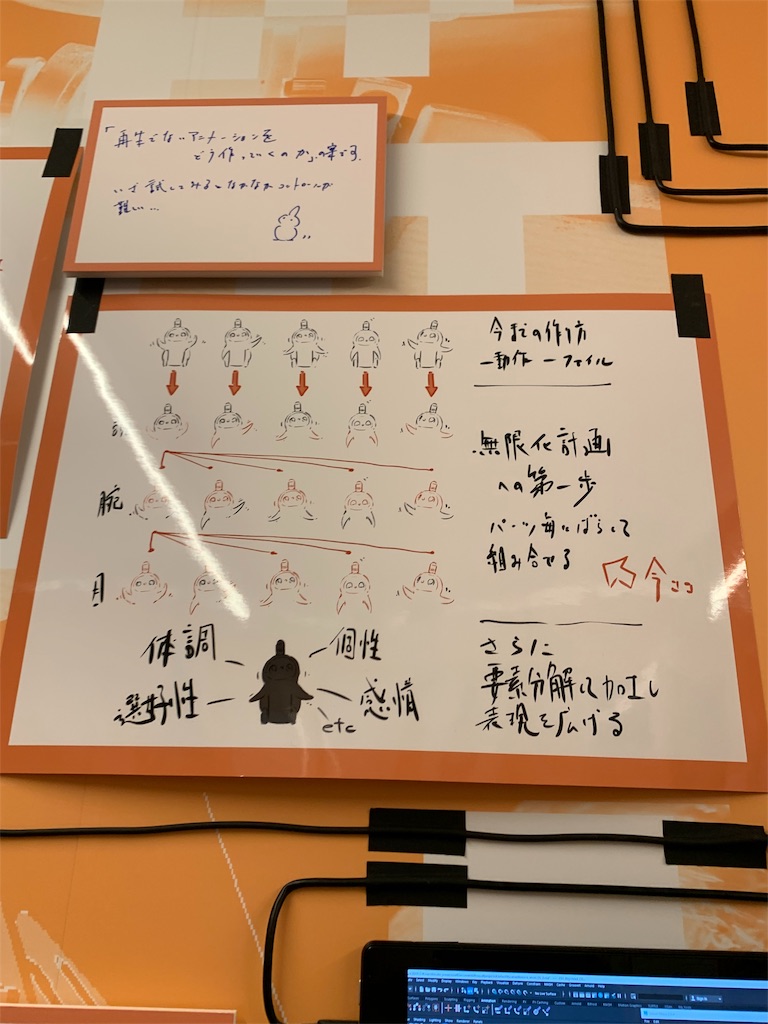 「再生でないアニメーションを
どう作っていくのか」の案です。
いざ試してみるとなかなかコントロールが
難しい…
今までの作り方
一動作 一ファイル
無限化計画
への第一歩
パーツ毎にばらして
組み合せる
今ココ
腕
体調
個性
選好性
感情
etc
さらに
要素分解して加工し
表現を広げる